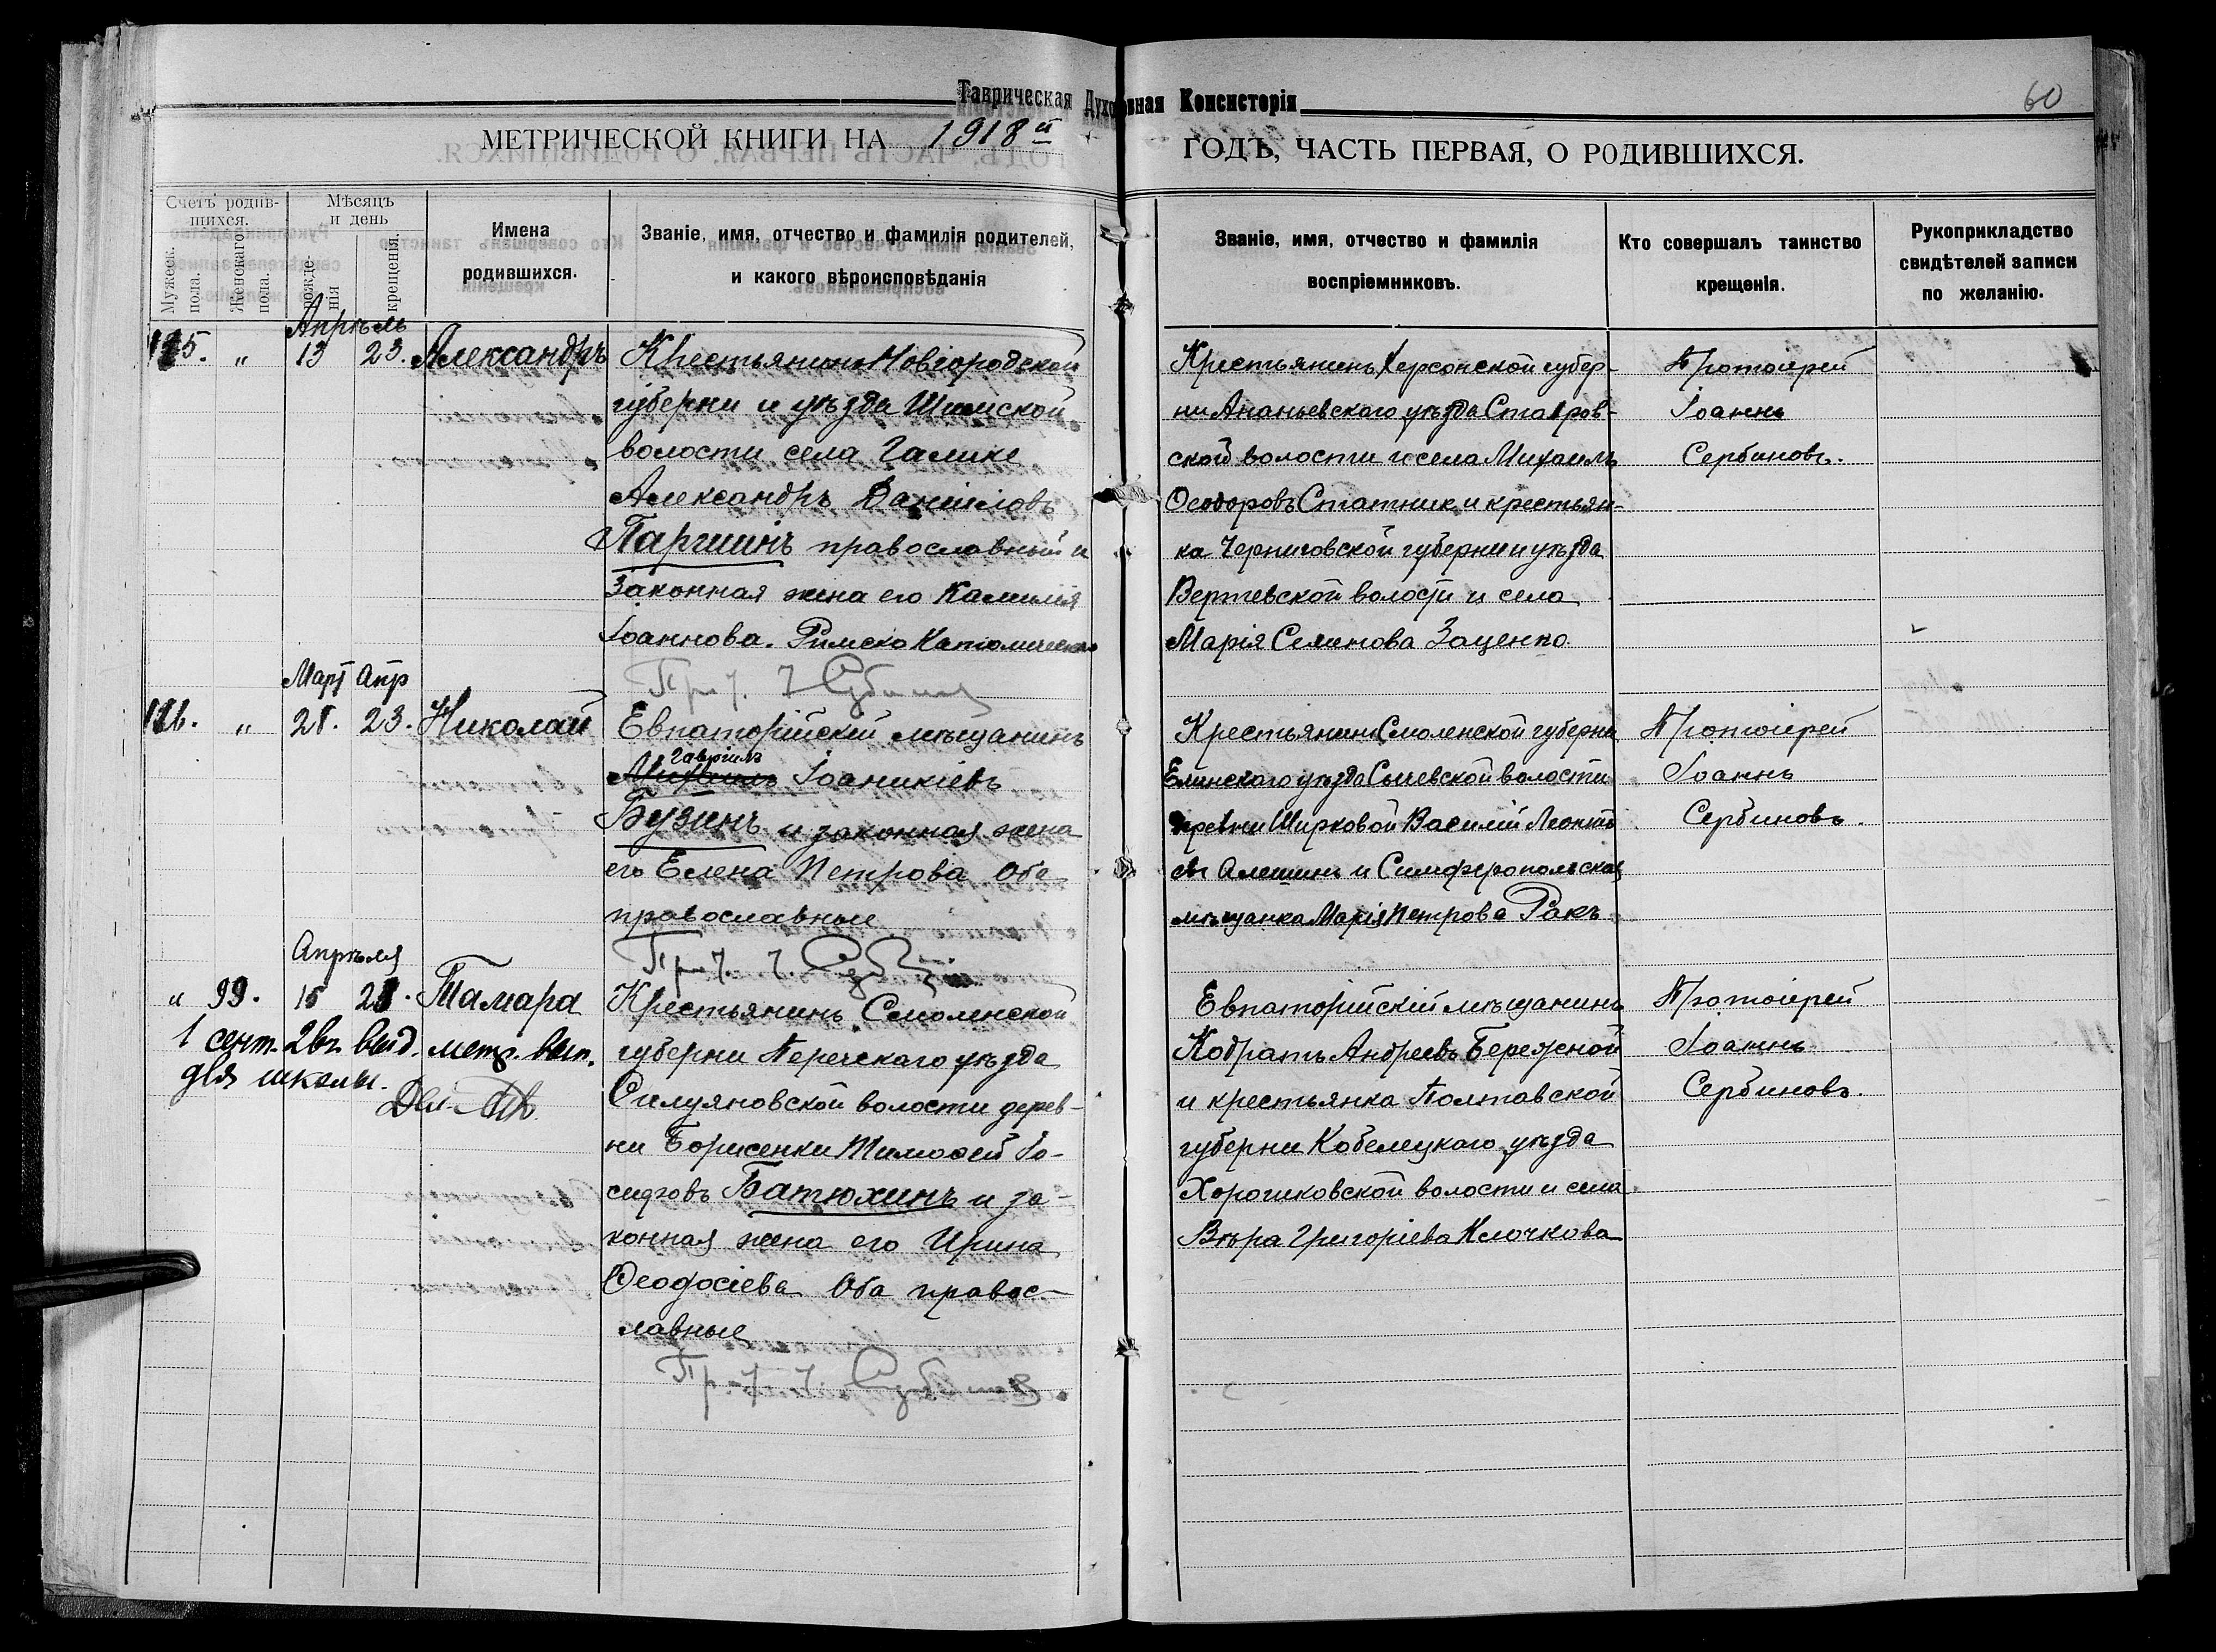 Таврическая Духовная Консисторія
60
МЕТРИЧЕСКОЙ КНИГИ НА 1918й ГОДЪ, ЧАСТЬ ПЕРВАЯ, О РОДИВШИХСЯ.
Счетъ родив-
шихся.
Мужеск.
пола.
Женскаго
пола.
Мѣсяцъ
и день
рожде-
нія
крещенія.
Имена
родившихся.
Званіе, имя, отчество и фамилія родителей,
и какого вѣроисповѣданія
Званіе, имя, отчество и фамилія
воспріемниковъ.
Кто совершалъ таинство
крещенія.
Рукоприкладство
свидѣтелей записи
по желанію.
Апрѣль
125. „ 13 23. Александръ
Крестьянинъ Новгородской
губерни и уѣзда Шимской
волости села
Александръ Даниловъ
Паршинъ православный и
Законная жена его Камилія
Іоаннова. Римско Католическ
Крестьянинъ Херсонской губер-
ни Ананьевскаго уѣзда Ставров-
ской волости и села Михаилъ
Ѳеодоровъ Статник и крестьян-
ка Черниговской губерни и уѣзда
Вертевской волости и села
Марія Семинова Заценко
Протоіерей
Іоаннъ
Сербиновъ.
Март Апр
126. „ 28. 23. Николай
Евпаторійскій мѣщанинъ
Гавріилъ
Михаилъ Іоаникіевъ
Бузинъ и законная жена
его Елена Петрова Оба
православные
Крестьянинъ Смоленской губерни
Елинскаго уѣзда Сычевской волости
деревни Ширковой Василій Леонть
евъ Алешинъ и Симферопольская
мѣщанка Марія Петрова Ракъ
Протоіерей
Іоаннъ
Сербиновъ.
Апрѣля
„ 99. 15 23. Тамара
1 сент. 2вг. выд. метр. вып.
для школы.
Крестьянинъ Смоленской
губерни Перечскаго уѣзда
Силуяновской волости дерев-
ни Борисенки Тимофей Іо-
сифовъ Батюхинъ и за-
конная жена его Ирина
Ѳеодосіева Оба правос-
лавные
Евпаторійскій мѣщанинъ
Кодратъ Андреевъ Бережной
и крестьянка Полтавской
губерни Кобелецкаго уѣзда
Хорошковской волости и села
Вѣра Григоріева Клочкова
Протоіерей
Іоаннъ
Сербиновъ.